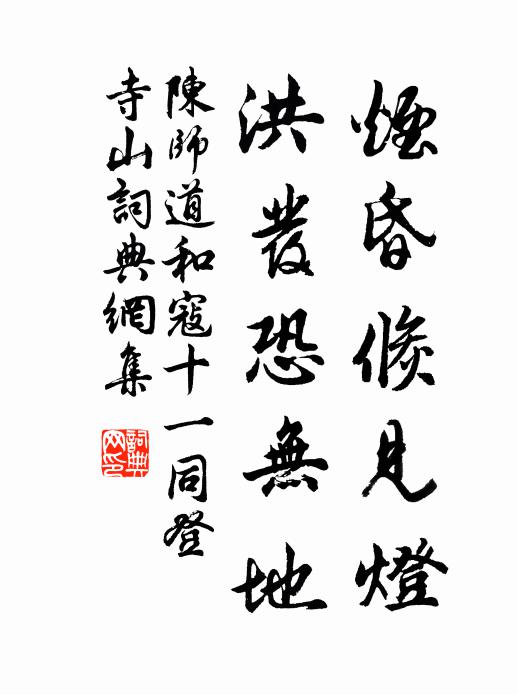 煙昏倏見燈
洪發恐無地
陳師道和寇十一同登
寺山詞典網集
詞典網印